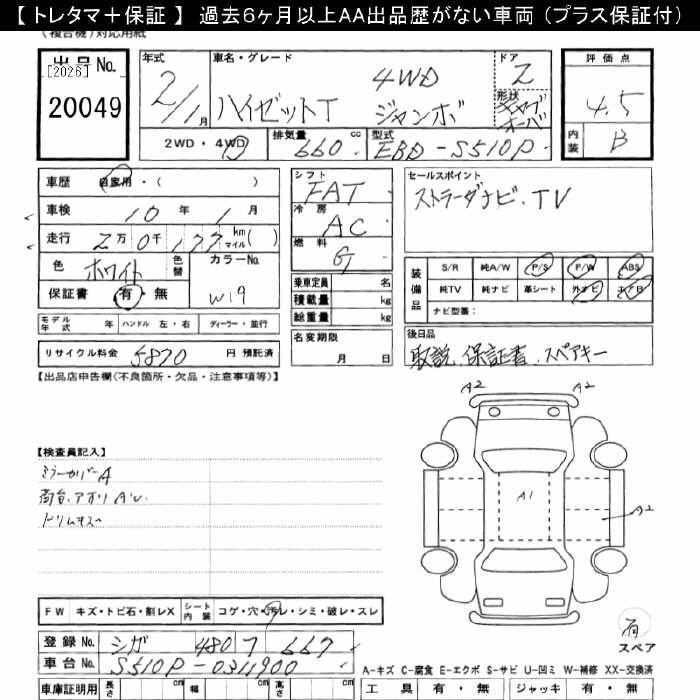 【 トレタマ＋保証 】 過去6ヶ月以上AA出品歴がない車両（プラス保証付）
（複合機）対応用紙
出品 No.
[2026]
20049
年式
2/1月
車名・グレード
4WD
ハイゼットT ジャンボ
ドア
2
形状
キャブオーバ
評価点
4.5
内装
B
2WD・4WD
排気量
660 cc
型式
EBD-S510P
車歴
自家用・( )
車検
10年 1月
走行
2万0千177 km マイル( )
色
ホワイト
色替
カラーNo.
W19
保証書
有・無
シフト
FAT
冷房
AC
燃料
G
乗車定員 名
積載量 kg
総重量 kg
セールスポイント
ストラーダナビ・TV
装備品
S/R 純A/W P/S P/W ABS
純TV 純ナビ 革シート 外ナビ エアB
ナビ型番：
モデル年式 年 ハンドル 左・右 ディーラー・並行
リサイクル料金 5870 円 預託済
名変期限
月 日
後日品
取説、保証書、スペアキー
【出品店申告欄(不良箇所・欠品・注意事項等)】
【検査員記入】
ミラーカバーA
荷台、アオリ AU
トリムキズ
A2 A2
A1
A2
FW キズ・トビ石・割レX シート内装 コゲ・穴・汚レ・シミ・破レ・スレ
登録 No. シガ 480 ワ 667
車台 No. S510P-0311900
車庫証明用 長さ cm 幅 cm 高さ cm
有
スペア
A-キズ C-腐食 E-エクボ S-サビ U-凹ミ W-補修 XX-交換済
工具 有・無 ジャッキ 有・無